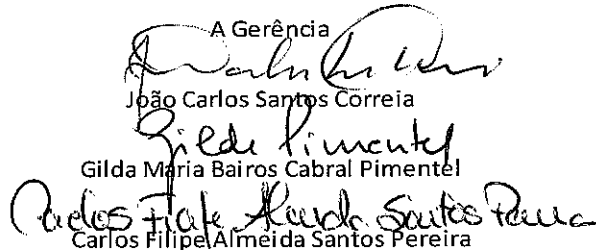 A Gerência
João Carlos Santos Correia
Gilde Pimentel
Gilda Maria Bairos Cabral Pimentel
Carlos Filipe Almeida Santos Pereira
Carlos Filipe Almeida Santos Pereira